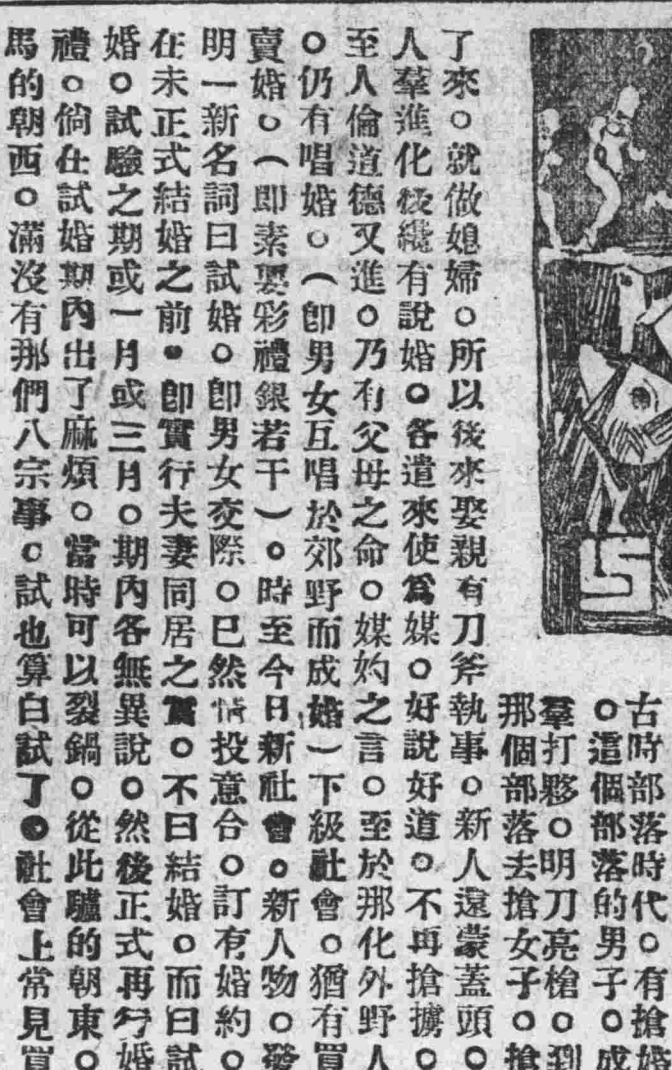 古時部落時代。有搶婚
。這個部落的男子。成
羣打夥。明刀亮槍。到
那個部落去搶女子。搶
了來。就做媳婦。所以後來娶親有刀斧執事。新人還蒙蓋頭。
人羣進化後纔有說婚。各遣來使爲媒。好說好道。不再搶擄。
至人倫道德又進。乃有父母之命。媒妁之言。至於那化外野人
。仍有唱婚。（卽男女互唱於郊野而成婚）下級社會。猶有買
賣婚。（卽素要彩禮銀若干）。時至今日新社會。新人物。發
明一新名詞曰試婚。卽男女交際。已然情投意合。訂有婚約。
在未正式結婚之前。卽實行夫妻同居之實。不曰結婚。而曰試
婚。試驗之期或一月或三月。期內各無異說。然後正式再行婚
禮。倘在試婚期內出了麻煩。當時可以裂鍋。從此驢的朝東。
馬的朝西。滿沒有那們八宗事。試也算白試了。社會上常見買